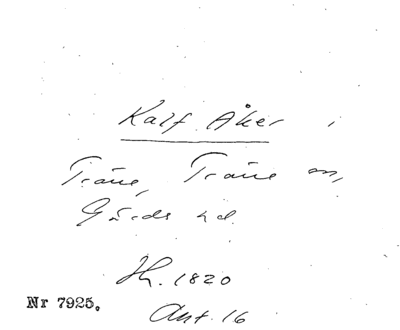 Kalf Åker i
Träne, Träne sn,
Gärds hd.
Jh. 1820
Nr 7925.
Akt. 16